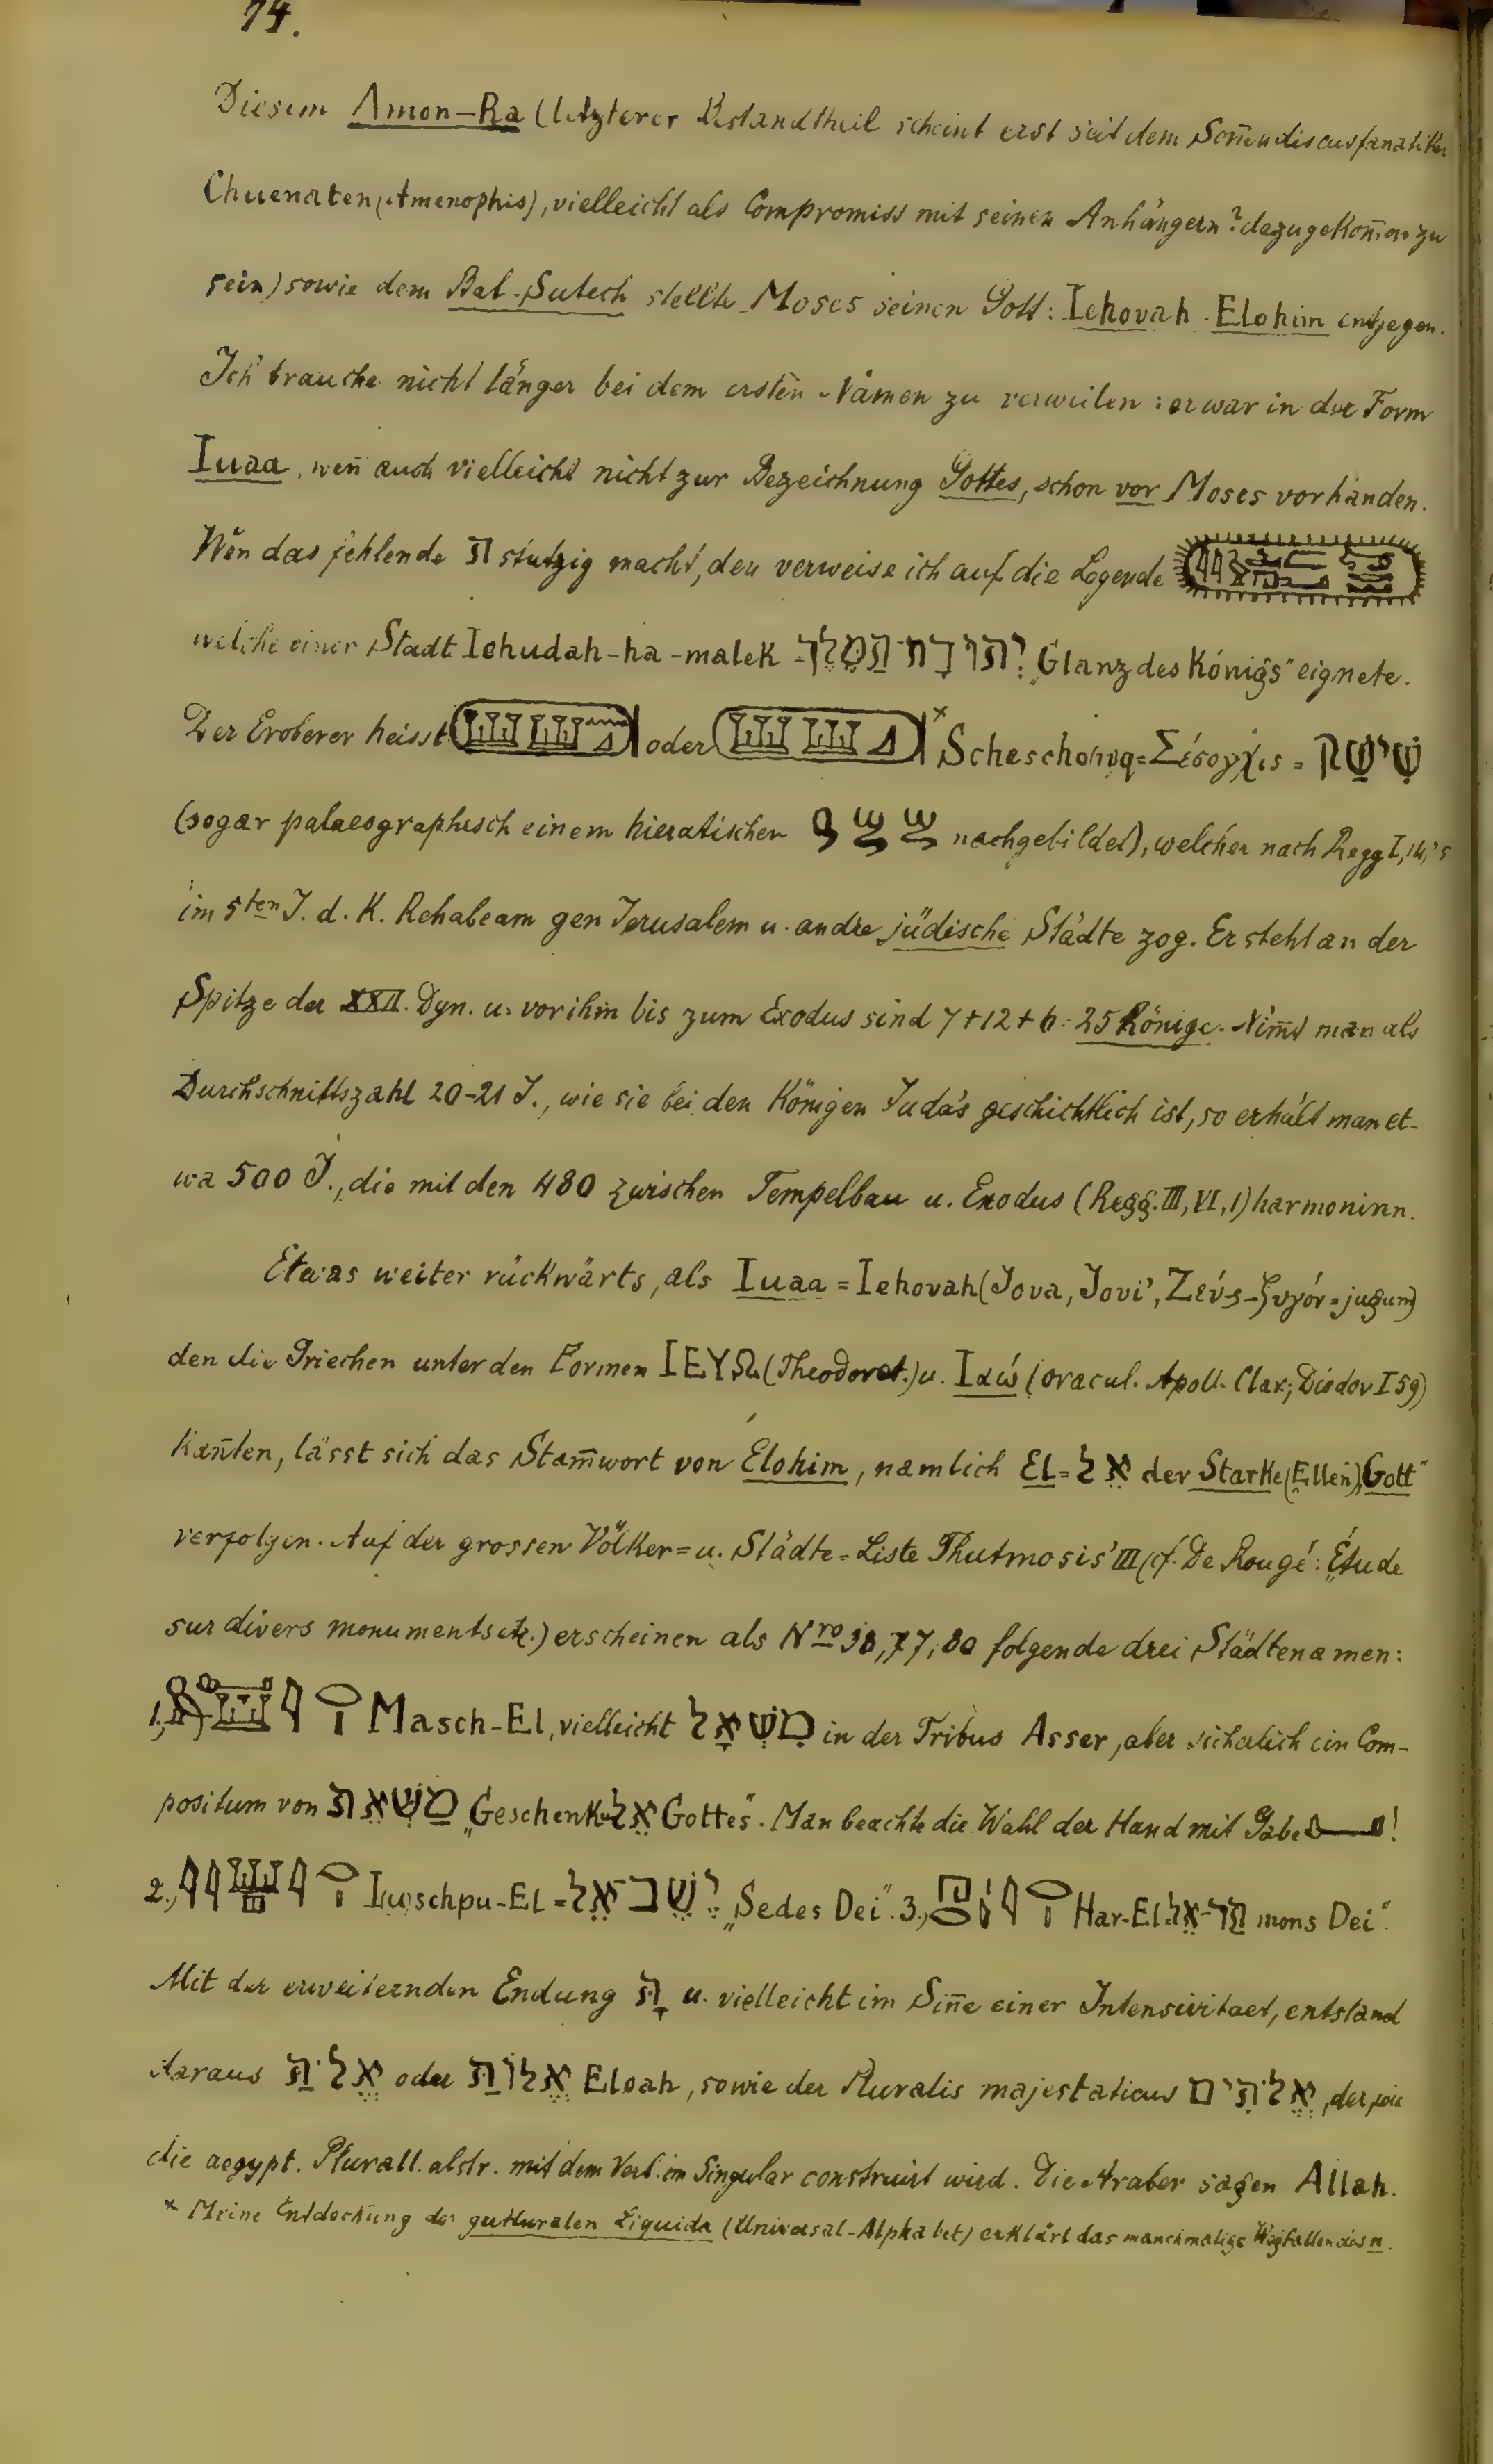 74.
Diesem Amon-Ra (letzterer Bestandtheil scheint erst seit dem Son̄endiscusfanatiker
Chuenaten (Amenophis), vielleicht als Compromiss mit seinen Anhängern? dazugekom̄en zu
sein) sowie dem Bal-Sutech stellte Moses seinen Gott: Iehovah-Elohim entgegen.
Ich brauche nicht länger bei dem ersten Namen zu verweilen: er war in der Form
Iuaa, wen̄ auch vielleicht nicht zur Bezeichnung Gottes, schon vor Moses vorhanden.
Wen das fehlende ה stutzig macht, den verweise ich auf die Legende
welche einer Stadt Iehudah-ha-malek = יְהוּדָה־הַמֶּלֶךְ „Glanz des Königs" eignete.
Der Eroberer heisst oder × Scheschonuq = Σέσογχις = שִׁישַׁק
(sogar palaeographisch einem hieratischen nachgebildet), welcher nach Regg I, 14,
im 5ten J. d. K. Rehabeam gen Jerusalem u. andre jüdische Städte zog. Er steht an der
Spitze der XXII. Dyn. u. vor ihm bis zum Exodus sind 7+12+6=25 Könige. Nim̄t man als
Durchschnittszahl 20-21 J., wie sie bei den Königen Juda's geschichtlich ist, so erhält man et-
wa 500 J., die mit den 480 zwischen Tempelbau u. Exodus (Regg. III, VI, 1) harmoniren.
Etwas weiter rückwärts, als Iuaa = Iehovah (Jova, Jovi', Ζεύς-ζυγόν = jugum)
den die Griechen unter den Formen ΙΕΥΩ (Theodoret.) u. Ιαώ (oracul. Apoll. Clar; Diodor I 59)
kan̄ten, lässt sich das Stam̄wort von Elohim, nämlich El = אֵל der Starke (Ellen), Gott"
verfolgen. Auf der grossen Völker= u. Städte=Liste Thutmosis' III (cf. De Rougé: „Étude
sur divers monuments etc.) erscheinen als Nro 38, 77, 80 folgende drei Städtenamen:
1., Masch-El, vielleicht מִשְׁאָל in der Tribus Asser, aber sicherlich ein Com-
positum von מַשְׂאֵת „Geschenk u. אֵל Gottes". Man beachte die Wahl der Hand mit Gabe !
2., Iuoschpu-El = יְשֵׁב־אֵל „Sedes Dei". 3., Har-El = הַר־אֵל mons Dei".
Mit der erweiternden Endung הָ u. vielleicht im Sin̄e einer Intensivitaet, entstand
daraus אֱלֹהַ oder אֱלוֹהַ Eloah, sowie der Pluralis majestaticus אֱלֹהִים, der, wie
die aegypt. Plurall. abstr. mit dem Verb. im Singular construirt wird. Die Araber sagen Allah.
× Meine Entdeckung der gutturalen Liquida (Universal-Alphabet) erklärt das manchmalige Wegfallen des n.